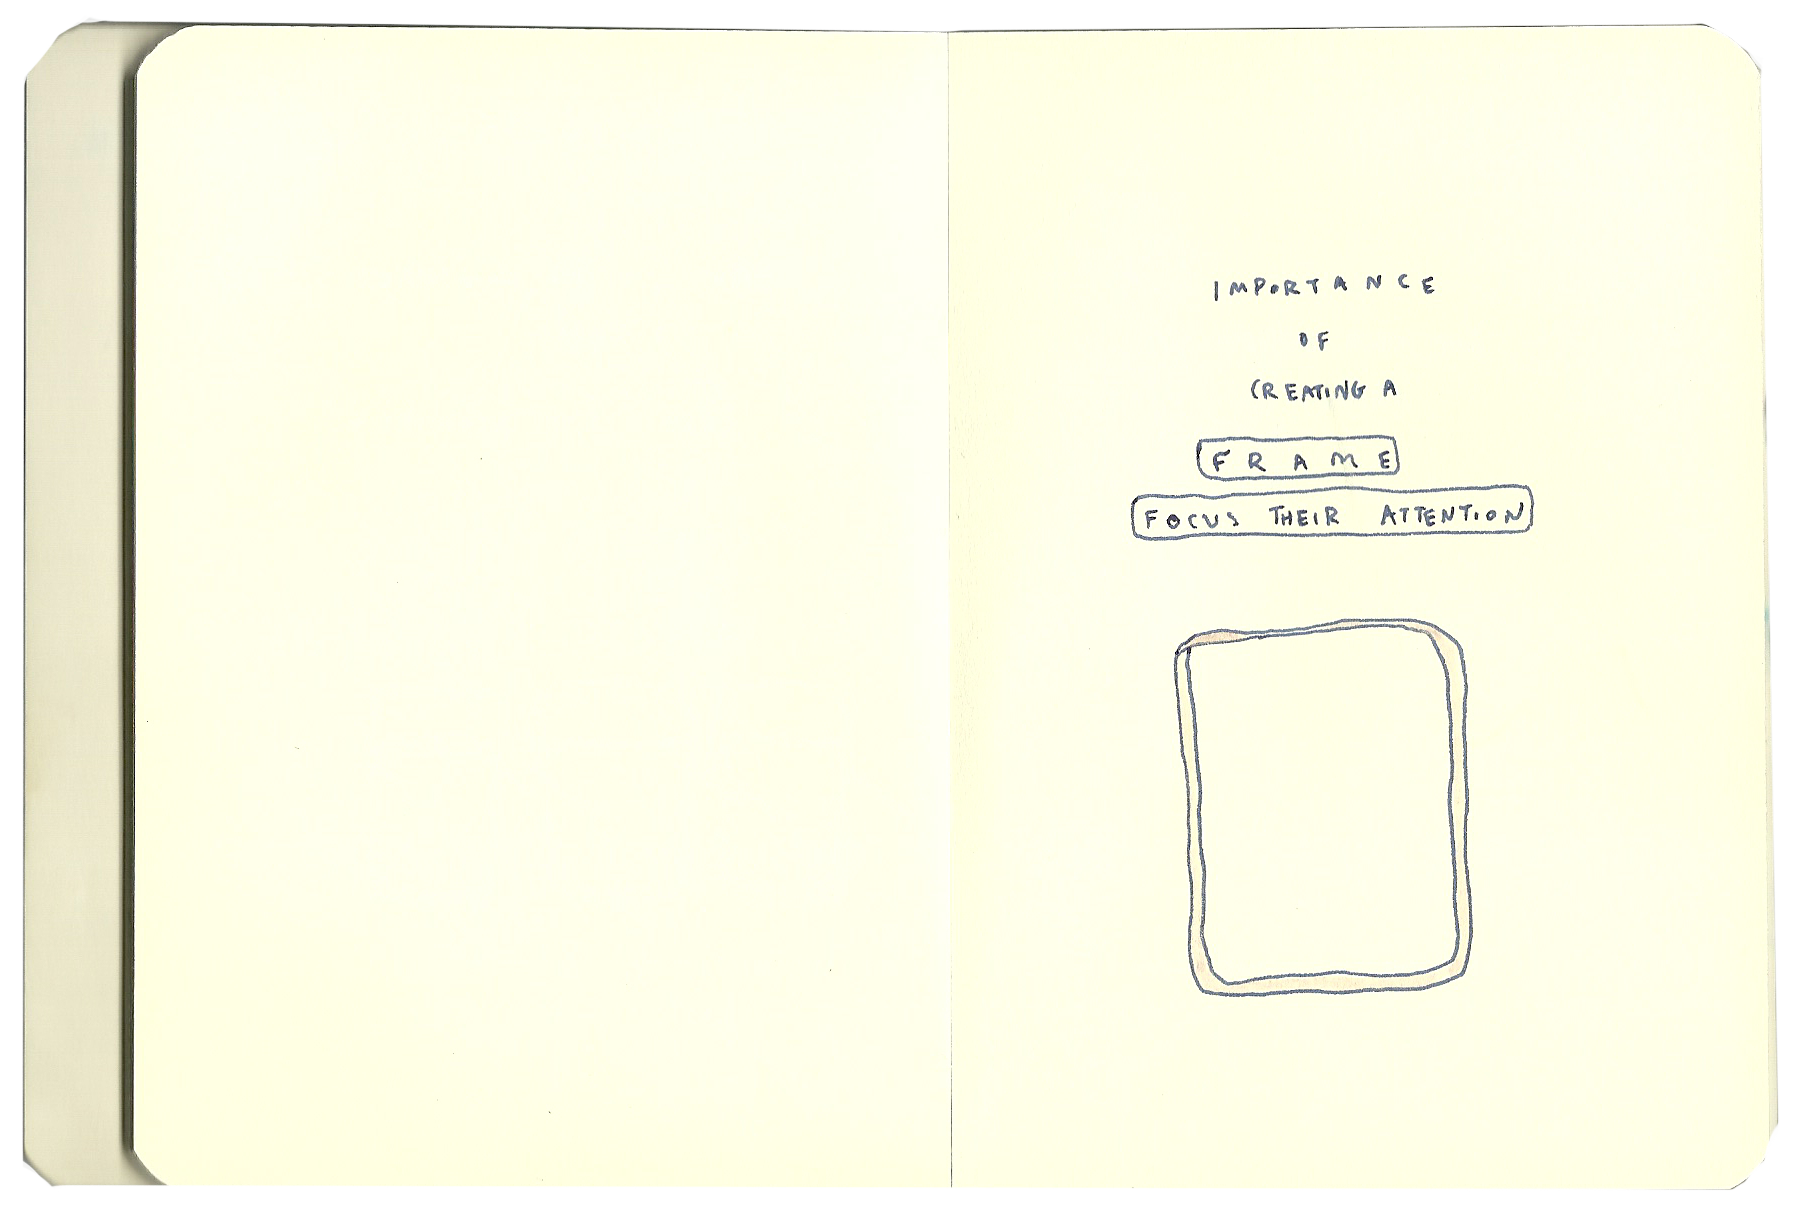 IMPORTANCE
OF
CREATING A
FRAME
FOCUS THEIR ATTENTION